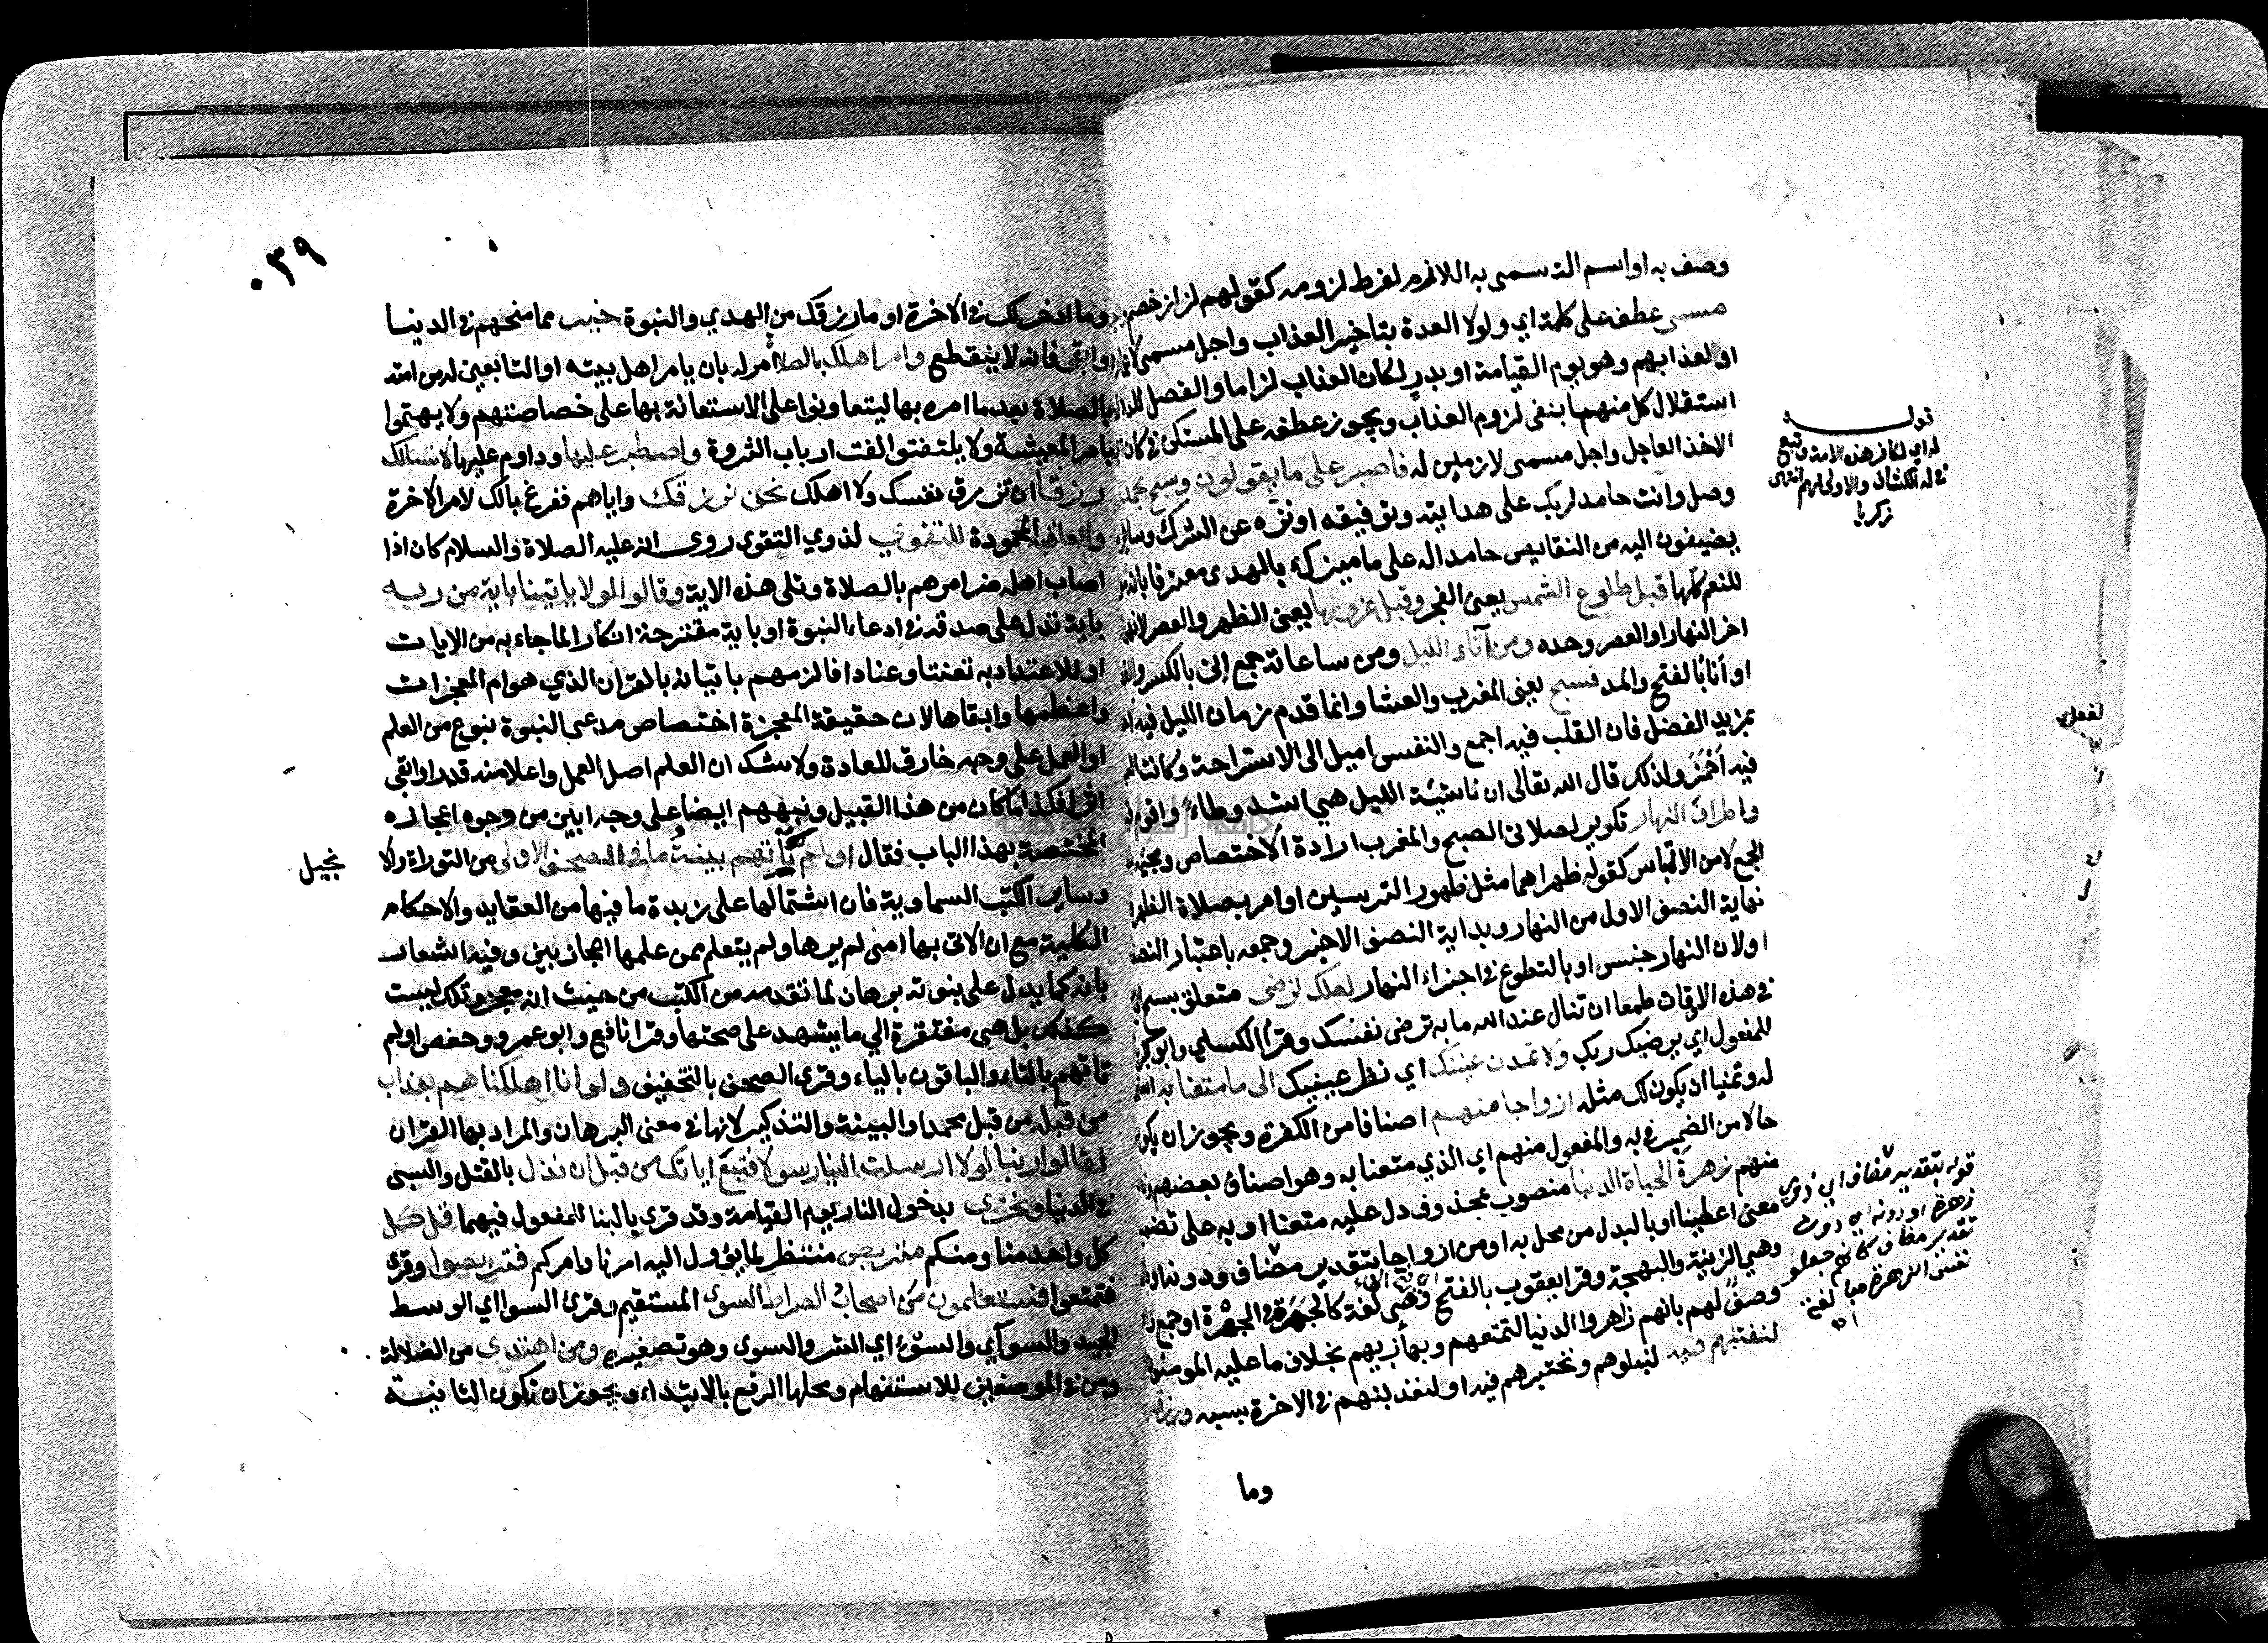 وصف به او اسم الة سمى به اللازم لفرط لزومه كقولهم لزاز خصم
مسمى عطف على كلمة اي ولولا العدة بتاخير العذاب واجل مسمى
او لعذابهم وهو يوم القيامة او بدر لكان العذاب لزاما والفصل
استقلال كل منهما بنفى لزوم العذاب ويجوز عطفه على المستكن في كان
الاخذ العاجل واجل مسمى لازمين له فاصبر على ما يقولون وسبح بحمد
وصل وانت حامد لربك على هدايته وتوفيقه او نزه عن الشرك وساير
يضيفون اليه من النقايص حامدا له على ما ميزك بالهدى معترفا بانه
للنعم كلها قبل طلوع الشمس يعنى الفجر وقبل غروبها يعنى الظهر والعصر
اخر النهار او العصر وحده ومن آناء الليل ومن ساعاته جمع إنى بالكسر
او أناء بالفتح والمد فسبح يعنى المغرب والعشا وانما قدم زمان الليل فيه
بمزيد الفضل فان القلب فيه اجمع والنفس اميل الى الاستراحة وكانت
فيه احمز ولذلك قال الله تعالى ان ناشئة الليل هي اشد وطاء واقوم
واطراف النهار تكرير لصلاتى الصبح والمغرب ارادة الاختصاص
الجمع لامن الالباس كقوله ظهراهما مثل ظهور الترسين او امر بصلاة الظهر
نهاية النصف الاول من النهار وبداية النصف الاخير وجمعه باعتبار
او لان النهار جنس او بالتطوع في اجزاء النهار لعلك ترضى متعلق بسبح
في هذه الاوقات طمعا ان تنال عند الله ما به ترضى نفسك وقرأ الكسائي وابو بكر
للمفعول اي يرضيك ربك ولا تمدن عينيك اي نظر عينيك الى ما متعنا به
له وتمنيا ان يكون لك مثله ازواجا منهم اصنافا من الكفرة ويجوز ان يكون
حالا من الضمير في به والمفعول منهم اي الذي متعنا به وهو اصناف بعضهم
منهم زهرة الحياة الدنيا منصوب بمحذوف دل عليه متعنا او به على
معنى اعطينا او بالبدل من محل به او من ازواجا بتقدير مضاف ودونه
وهي الزينة والبهجة وقرا يعقوب بالفتح وهى لغة كالجهرة في الجهرة او جمع
وصف لهم بانهم زاهروا الدنيا لتنعمهم وبها زيهم بخلاف ما عليه المومنون
لنفتنهم فيه لنبلوهم ونختبرهم فيه او لنعذبنهم في الاخرة بسببه ورزق
وما
قوله
له اي لكفار هذه الامة وتبع
في له الكشاف والاولى لهم انتهى
زكريا
قوله بتقدير مضاف اي ذوي
زهرة او دونه اي دون
تقدير مضاف كانهم جعلوا
نفس الزهرة مبالغة
اه
٠٣٩
وما ادخر لك في الاخرة او ما رزقك من الهدي والنبوة خير مما منحهم في الدنيا
وابقى فانه لا ينقطع وامر اهلك بالصلاة امر له بان يامر اهل بيته او التابعين له من امته
بالصلاة بعد ما امره بها ليتعاونوا على الاستعانة بها على خصاصتهم ولا يهتموا
بامر المعيشة ولا يلتفتوا لفت ارباب الثروة واصطبر عليها وداوم عليها لا نسالك
رزقا ان ترزق نفسك ولا اهلك نحن نرزقك واياهم ففرغ بالك لامر الاخرة
والعاقبة المحمودة للتقوى لذوي التقوى روي انه عليه الصلاة والسلام كان اذا
اصاب اهله ضر امرهم بالصلاة وتلى هذه الاية وقالوا لولا ياتينا باية من ربه
باية تدل على صدقه في ادعاء النبوة او باية مقترحة انكارا لما جاء به من الايات
او للاعتداد به تعنتا وعنادا فالزمهم باتيانه بالقران الذي هو ام المعجزات
واعظمها وابقاها لان حقيقة المعجزة اختصاص مدعى النبوة بنوع من العلم
او العمل على وجه خارق للعادة ولا شك ان العلم اصل العمل واعلا منه قدرا وابقى
اثرا فكذا ما كان من هذا القبيل ونبههم ايضا على وجه ابين من وجوه اعجازه
المختصة بهذا الباب فقال اولم تأتهم بينة ما في الصحف الاولى من التوراة والا
نجيل
وساير الكتب السماوية فان اشتمالها على زبدة ما فيها من العقايد والاحكام
الكلية مع ان الاتى بها امى لم يرها ولم يتعلم ممن علمها اعجاز بين وفيه اشعار
بانه كما يدل على نبوته برهان لما تقدمه من الكتب من حيث انه معجز وتلك ليست
كذلك بل هي مفتقرة الي ما يشهد على صحتها وقرا نافع وابو عمرو وحفص اولم
تاتهم بالتاء والباقون بالياء وقرئ الصحف بالتخفيف ولو انا اهلكناهم بعذاب
من قبله من قبل محمد او البينة والتذكير لانها في معنى البرهان والمراد بها القران
لقالوا ربنا لولا ارسلت الينا رسولا فنتبع اياتك من قبل ان نذل بالقتل والسبى
في الدنيا ونخزى بدخول النار يوم القيامة وقد قرئ بالبنا للمفعول فيهما قل كل
كل واحد منا ومنكم متربص منتظر لما يؤول اليه امرنا وامركم فتربصوا وقرئ
فتمتعوا فستعلمون من اصحاب الصراط السوى المستقيم وقرئ السوا اي الوسط
الجيد والسوآى والسوء اي الشر والسوى وهو تصغيره ومن اهتدى من الضلالة
ومن في الموضعين للاستفهام ومحلها الرفع بالابتداء ويجوز ان تكون الثانية